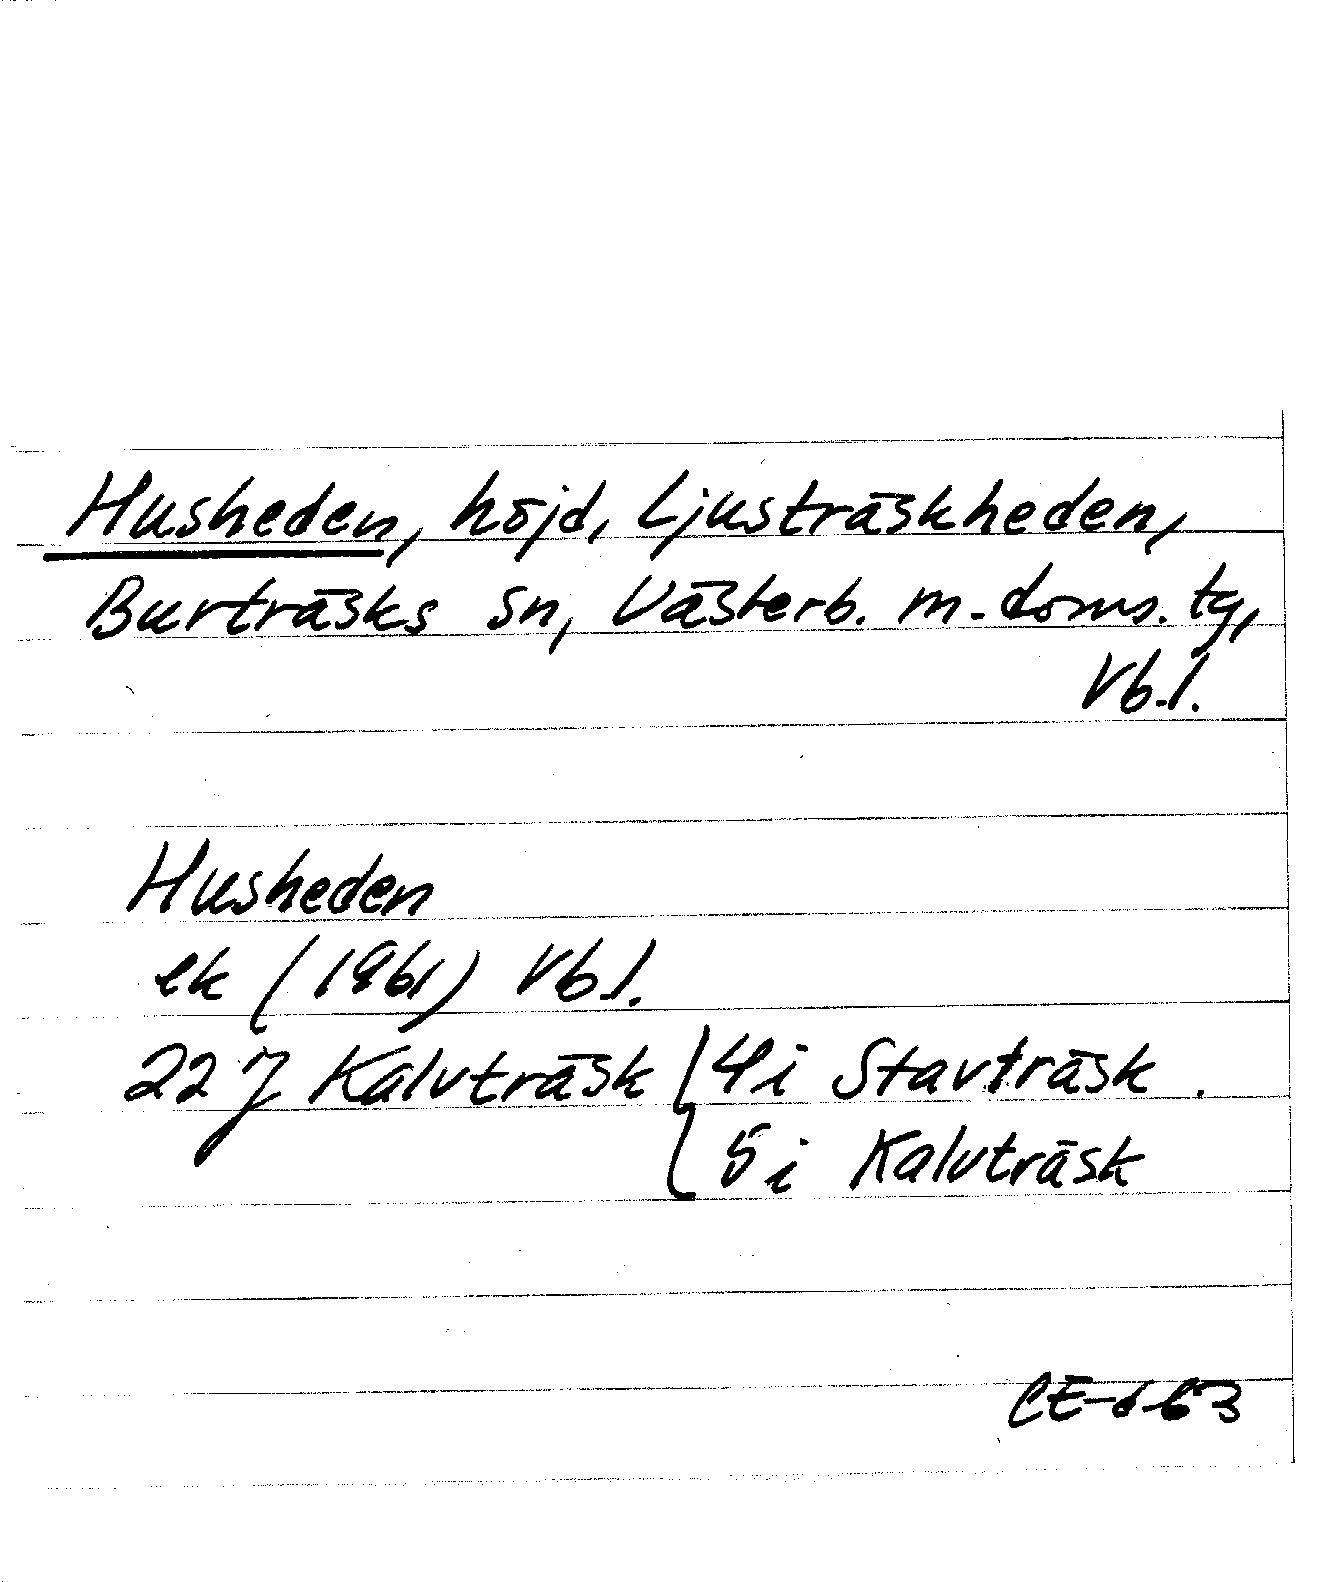 Husheden, höjd, Ljusträskheden,
Burträsks sn, Västerb. m. doms. tg,
Vb.l.
Husheden
ek (1961) Vb l.
22 J Kalvträsk { 4 i Stavträsk .
5 i Kalvträsk
CE-663